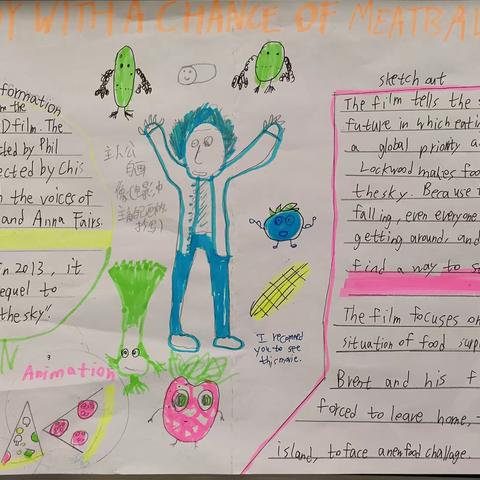 DY WITH A CHANCE OF MEATBAL
formation
om the
D film. The
cted by Phil
ected by Chis
h the voices of
and Anna Fairs.
In 2013, it
equel to
the sky".
N
Animation
主人公
I recomend
you to see
this movie.
sketch art
The film tells the s
future in which eatin
a global priority a
Lockwood makes foo
the sky. Because
falling, even everyone
getting around, and
find a way to s
The film focuses on
situation of food supp
Brent and his f
forced to leave home,
island, to face a new food challage